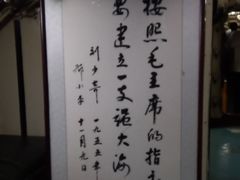 按照毛主席的指示
要建立一支强大海
刘少奇 一九五五年
邓小平 十一月九日